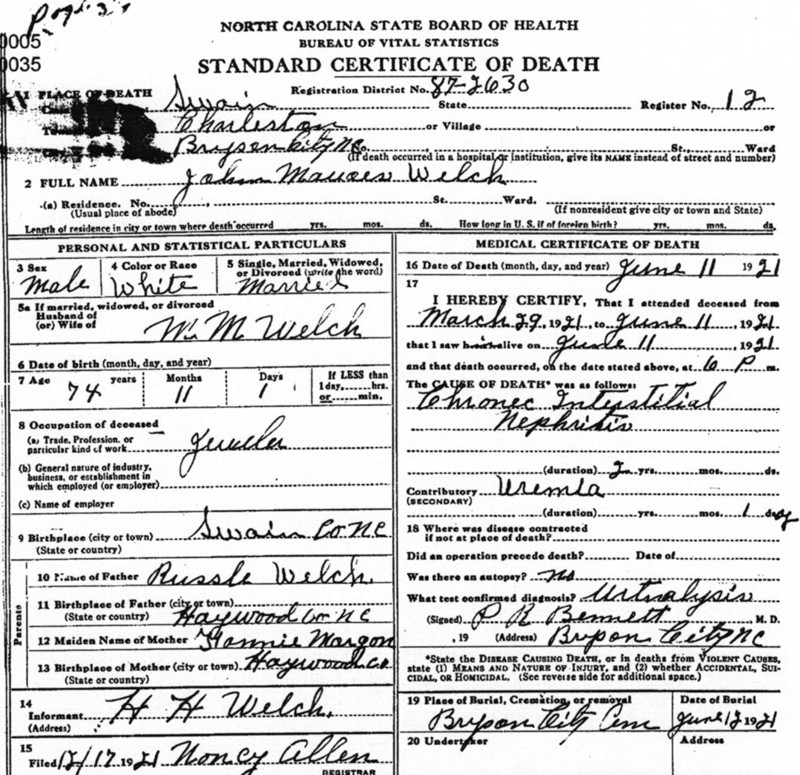 Page 37
NORTH CAROLINA STATE BOARD OF HEALTH
BUREAU OF VITAL STATISTICS
STANDARD CERTIFICATE OF DEATH
0005
0035
1 PLACE OF DEATH
Registration District No. 87-2630
Swain State Register No. 12
Charleston or Village or
Bryson City NC No. St., Ward
(If death occurred in a hospital or institution, give its NAME instead of street and number)
2 FULL NAME John Mauses Welch
(a) Residence. No. St. Ward.
(Usual place of abode) (If nonresident give city or town and State)
Length of residence in city or town where death occurred yrs. mos. ds. How long in U.S. if of foreign birth? yrs. mos. ds.
PERSONAL AND STATISTICAL PARTICULARS
3 Sex 4 Color or Race 5 Single, Married, Widowed, or Divorced (write the word)
Male White Married
5a If married, widowed, or divorced
Husband of
(or) Wife of M Welch
6 Date of birth (month, day, and year)
7 Age years Months Days If LESS than
1 day,......hrs.
or......min.
74 11 1
8 Occupation of deceased
(a) Trade, Profession, or
particular kind of work Jeweler
(b) General nature of industry,
business, or establishment in
which employed (or employer)
(c) Name of employer
9 Birthplace (city or town) Swain Co NC
(State or country)
Parents
10 Name of Father Russle Welch.
11 Birthplace of Father (city or town)
(State or country) Haywood Co NC
12 Maiden Name of Mother Hannie Margon
13 Birthplace of Mother (city or town) Haywood Co
(State or country)
14
Informant H H Welch.
(Address)
15
Filed 12/17 1921 Noncy Allen
REGISTRAR
MEDICAL CERTIFICATE OF DEATH
16 Date of Death (month, day, and year) June 11 1921
17
I HEREBY CERTIFY, That I attended deceased from
March 29, 1921, to June 11, 1921
that I saw him alive on June 11, 1921
and that death occurred, on the date stated above, at 6 P m.
The CAUSE OF DEATH* was as follows:
Chronec Interstitial
Nephritis
(duration) 2 yrs. mos. ds.
Contributory Uremia
(SECONDARY)
(duration) yrs. mos. 1 day
18 Where was disease contracted
if not at place of death?
Did an operation precede death? Date of
Was there an autopsy? no
What test confirmed diagnosis? Urinalysis
(Signed) P R Bennett M. D.
, 19 (Address) Bryson City NC
*State the DISEASE CAUSING DEATH, or in deaths from VIOLENT CAUSES,
state (1) MEANS AND NATURE OF INJURY, and (2) whether ACCIDENTAL, SUI-
CIDAL, or HOMICIDAL. (See reverse side for additional space.)
19 Place of Burial, Cremation, or removal Date of Burial
Bryson City Cem June 12 1921
20 Undertaker Address